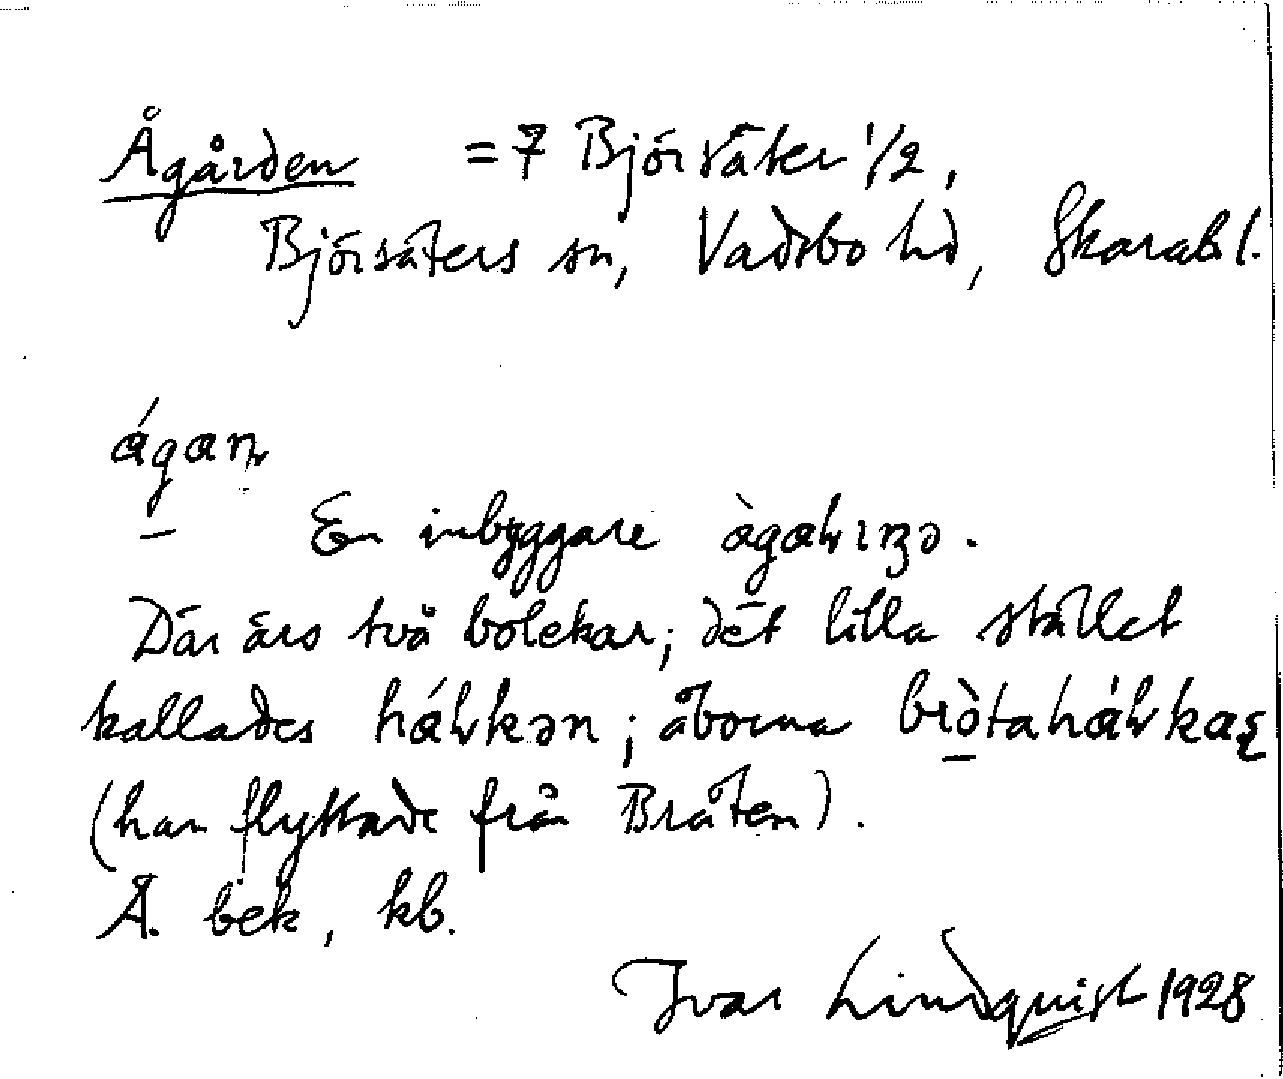 Ågården = 7 Björsäter 1/2,
Björsäters sn, Vadsbo hd, Skarab. l.
ágaṇ
En inbyggare
Där äro två bolekar; dét lilla stället
kallades ; åborna
(han flyttade från Bråten).
Å. bek, kb.
Ivar Lindquist 1928